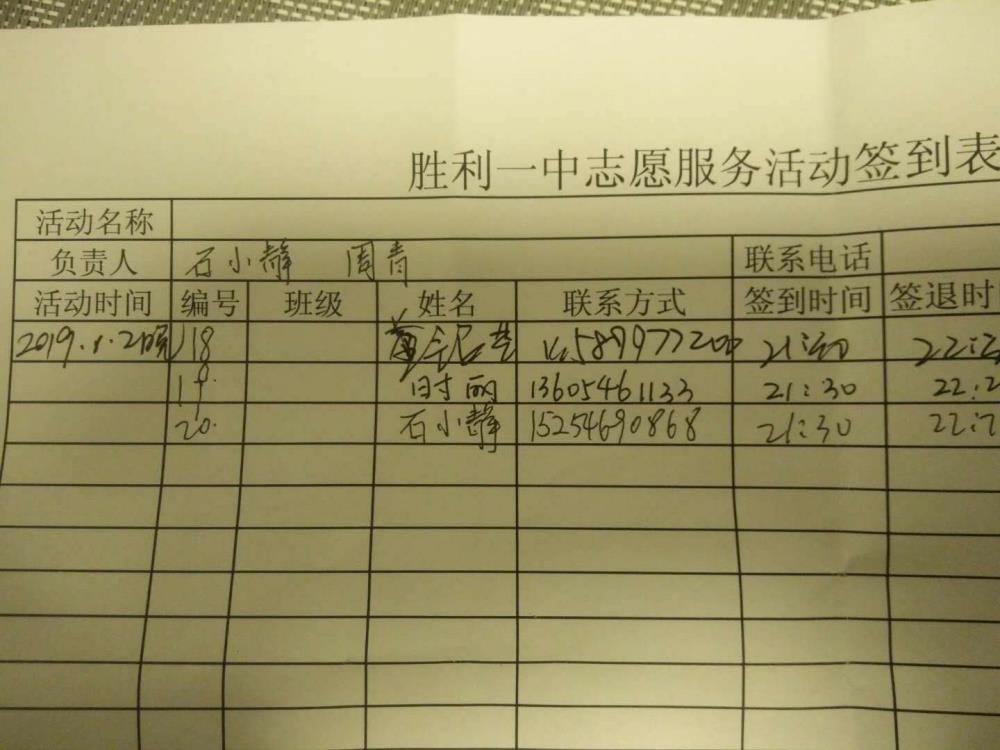 胜利一中志愿服务活动签到表
活动名称
负责人 石小静 周青 联系电话
活动时间 编号 班级 姓名 联系方式 签到时间 签退时
2019.1.2晚 118 22:2
19. 时丽 13605461133 21:30 22:2
20. 石小静 15254690868 21:30 22:2